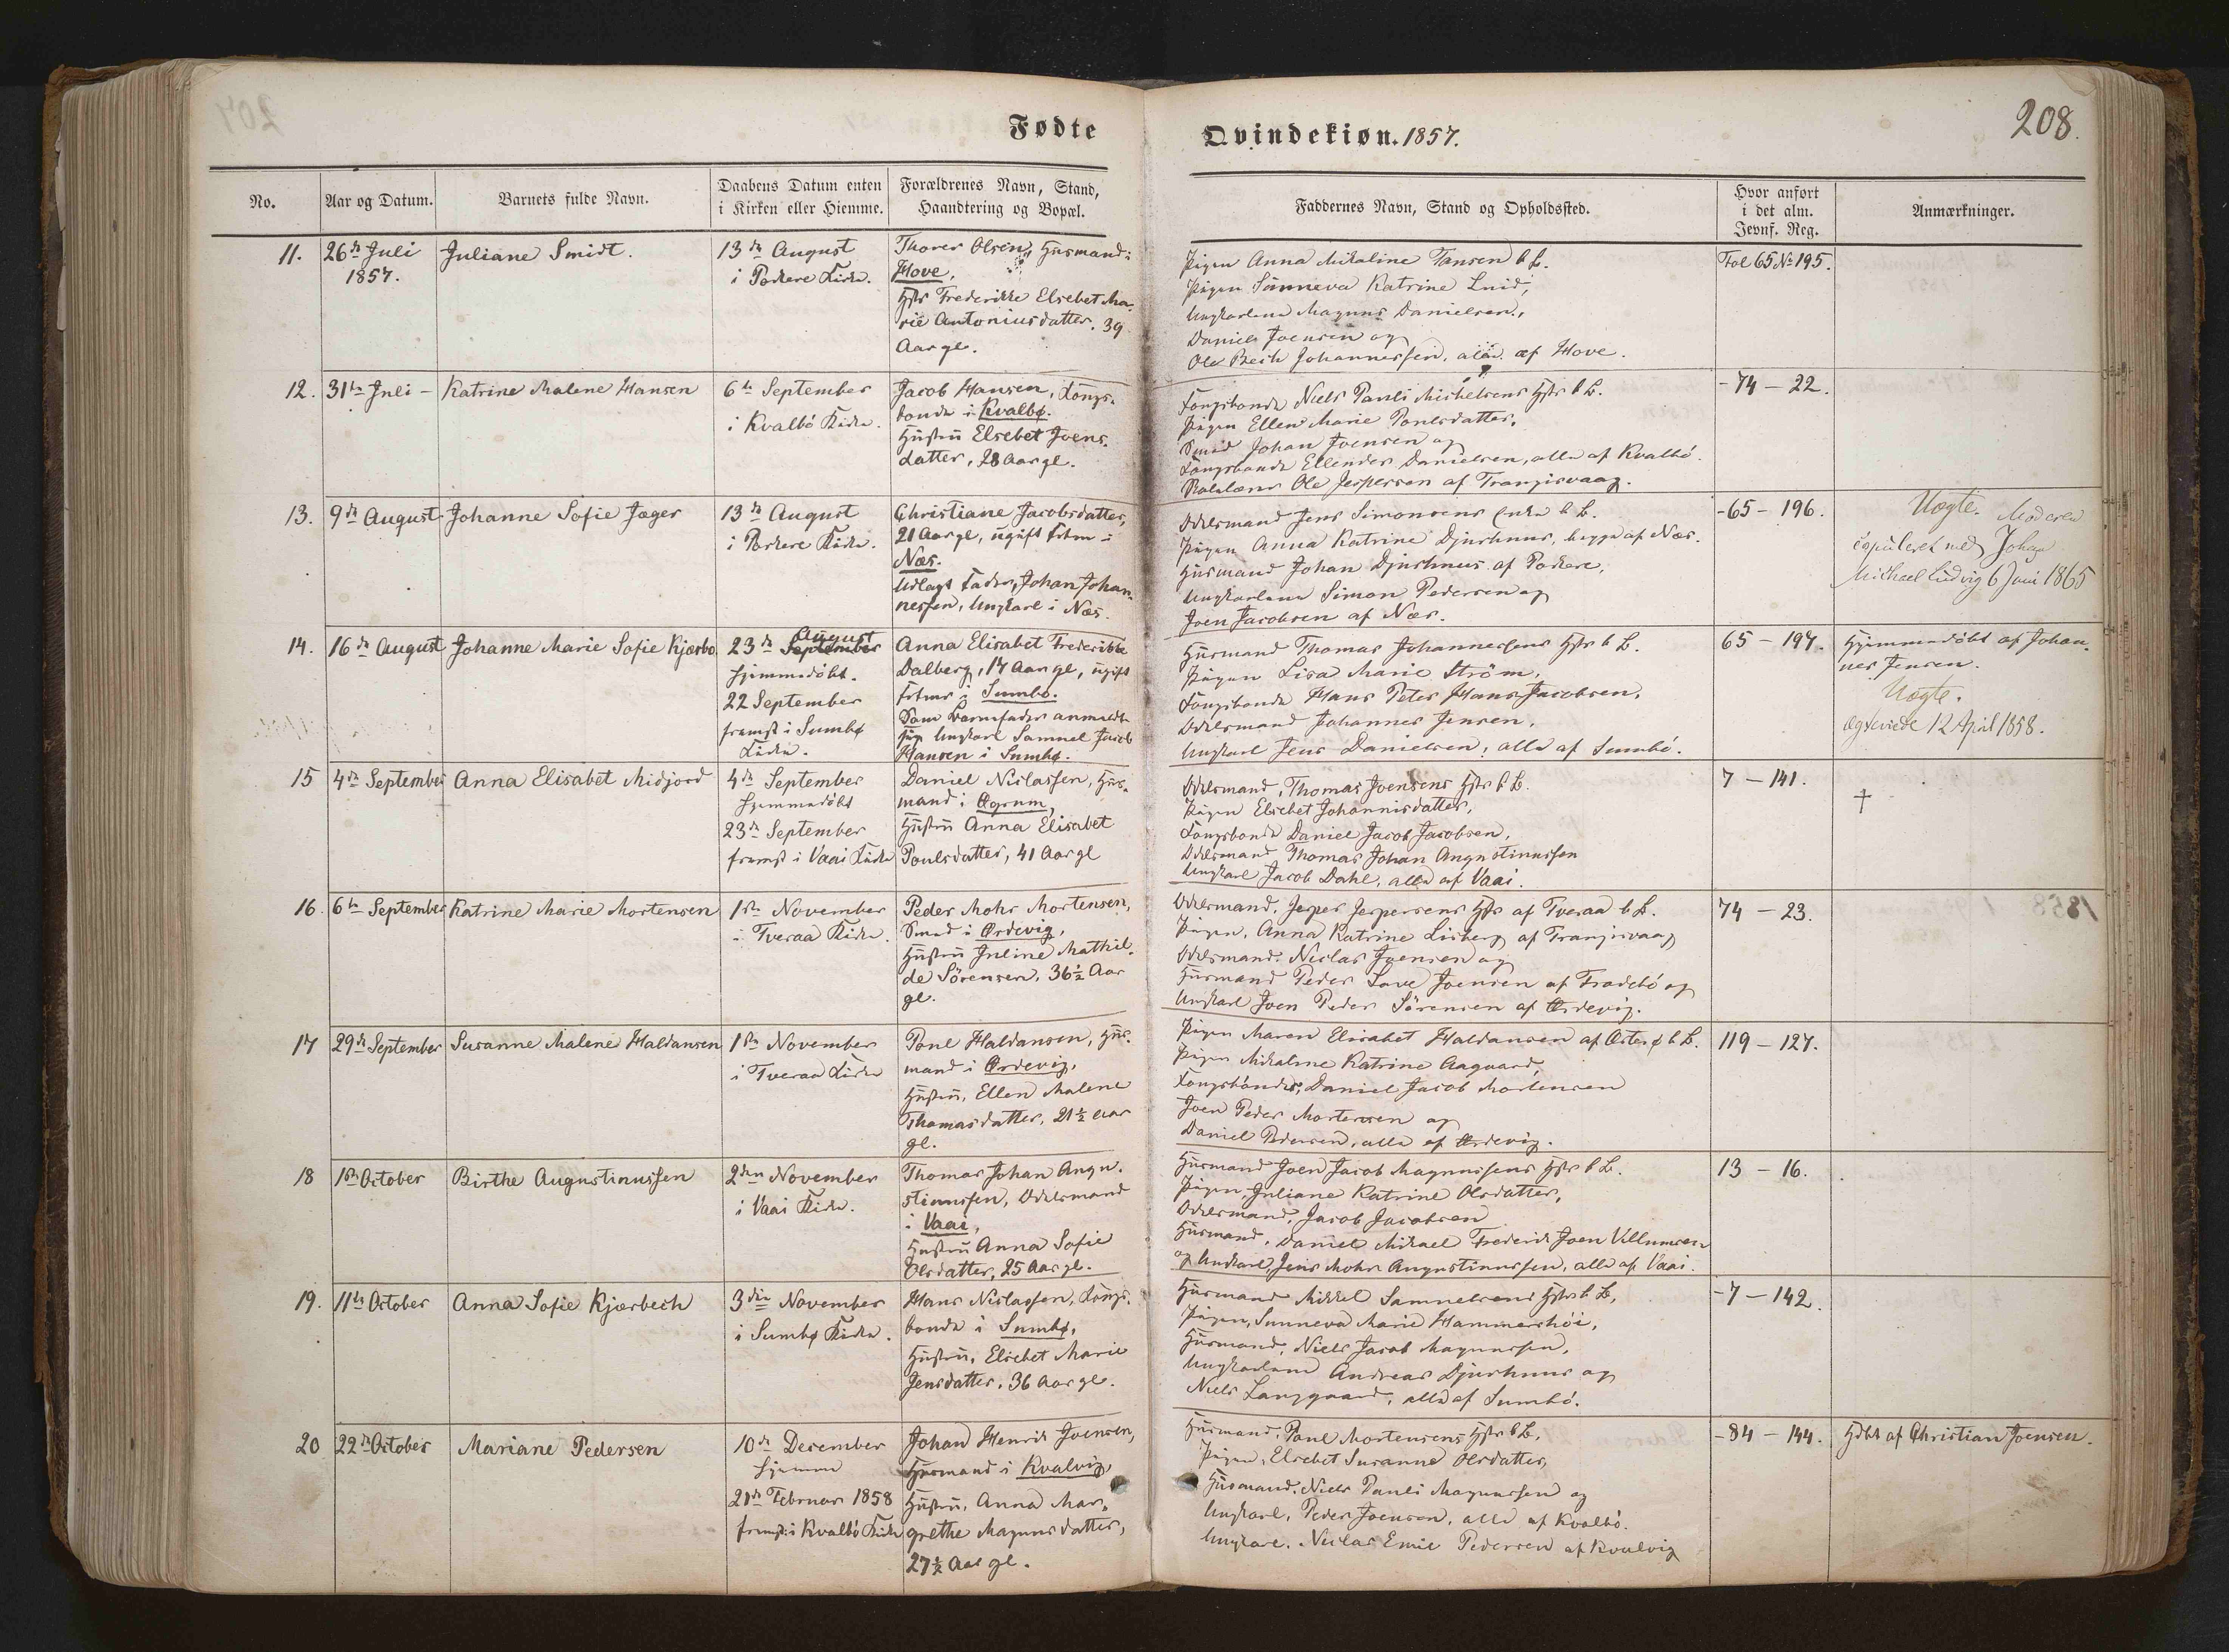 208.
Fødte
Qvindekiøn. 1857.
No.
Aar og Datum.
Barnets fulde Navn.
Daabens Datum enten
i Kirken eller Hiemme.
Forældrenes Navn, Stand,
Haandtering og Bopæl.
Faddernes Navn, Stand og Opholdssted.
Hvor anført
i det alm.
Jevnf. Reg.
Anmærkninger.
11.
26de Juli
1857.
Juliane Smidt.
13de August
i Porkere Kirke.
Thorer Olsen, Husmand i
Hove.
Hstr Frederikke Elsebet Ma-
rie Antoniusdatter. 39
Aar gl.
Pigen Anna Mikaline Jansen b B.
Pigen Sunneva Katrine Luid,
Ungkarlene Magnus Danielsen,
Daniel Joensen og
Ole Bech Johannessen, alle af Hove.
Fol 65 No 195.
12.
31te Juli -
Katrine Malene Hansen
6te September
i Kvalbø Kirke.
Jacob Hansen, Kongs-
bonde i Kvalbø.
Hustru Elsebet Joens-
datter, 28 Aar gl.
Kongsbonde Niels Pauli Mickelsens Hstr b B.
Pigen Ellen Marie Poulsdatter,
Smed Johan Joensen og
Kongsbonde Ellendes Danielsen, alle af Kvalbø.
Ole Jespersen af Trangisvaag.
- 74 - 22.
13.
9de August
Johanne Sofie Jæger
13de August
i Porkere Kirke.
Christiane Jacobsdatter,
21 Aar gl, ugift Frtm i
Næs.
Udlagt Fader, Johan Johan-
nessen, Ungkarl i Næs.
Odelsmand Jens Simonsens Enke b B.
Pigen Anna Katrine Djurhuus, begge af Næs.
Husmand Johan Djurhuus af Porkere,
Ungkarlene Simon Pedersen og
Joen Jacobsen af Næs.
- 65 - 196.
Uægte. Moderen
copuleret med Johan
Michael Ludvig 6 Juni 1865
14.
16de August
Johanne Marie Sofie Kjærbo
August
23de September
hjemmedøbt.
22 September
fremst i Sumbø
Kirke.
Anna Elisabet Frederikke
Dalberg, 17 Aar gl, ugift
i Sumbø.
Som Barnefader anmeldt
sig Ungkarl Samuel Jacob
Hansen i Sumbø.
Husmand Thomas Johannessens Hstr b B.
Pigen Lisa Marie Strøm,
Kongsbonde Hans Peter Hans Jacobsen,
Odelsmand Johannes Jensen,
Ungkarl Jens Danielsen, alle af Sumbø.
65 - 197.
Hjemmedøbt af Johan-
nes Jensen.
Uægte.
Ægteviede 12 April 1858.
15
4de September
Anna Elisabet Midjord
4de September
hjemmedøbt
23de September
fremst i Vaai Kirke
Daniel Niclassen, Hus-
mand i Øgrum,
Hustru Anna Elisabet
Poulsdatter, 41 Aar gl
Odelsmand, Thomas Joensens Hstr b B.
Pigen Elsebet Johannisdatter,
Kongsbonde Daniel Jacob Jacobsen,
Odelsmand Thomas Johan Augustinussen
Ungkarl Jacob Dahl, alle af Vaai.
7 - 141.
†
16.
6te September
Katrine Marie Mortensen
1ste November
i Tveraa Kirke.
Peder Mohr Mortensen,
Smed i Ordevig,
Hustru Juline Mathil-
de Sørensen, 36½ Aar
gl.
Odelsmand, Jesper Jespersens Hstr af Tveraa b B.
Pigen, Anna Katrine Lisberg af Trangisvaag
Odelsmand, Niclas Joensen og
Husmand Peder Save Joensen af Frodebø og
Ungkarl Joen Peder Sørensen af Ordevig.
74 - 23.
17
29de September
Susanne Malene Haldansen
1ste November
i Tveraa Kirke
Poul Haldansen, Hus-
mand i Ordevig,
Hustru, Ellen Malene
Thomasdatter, 21½ Aar
gl.
Pigen Maren Elisabet Haldansen af Østerø b B.
Pigen Mikaline Katrine Aagaard,
Kongsbønder, Daniel Jacob Mortensen
Joen Peder Mortensen og
Daniel Pedersen, alle af Ordevig.
119 - 127.
18
1ste October
Birthe Augustinussen
2den November
i Vaai Kirke.
Thomas Johan Augu-
stinussen, Odelsmand
i Vaai,
Hustru Anna Sofie
Olsdatter, 25 Aar gl.
Husmand Joen Jacob Magnussens Hstr b B.
Pigen, Juliane Katrine Olsdatter,
Odelsmand, Jacob Jacobsen
Husmand, Daniel Mikael Frederik Joen Villumsen
og Ungkarl, Jens Mohr Augustinussen, alle af Vaai.
13 - 16.
19.
11te October
Anna Sofie Kjærbech
3die November
i Sumbø Kirke.
Hans Niclassen, Kongs-
bonde i Sumbø,
Hustru, Elsebet Marie
Jensdatter, 36 Aar gl.
Husmand Mikkel Samuelsens Hstr b B,
Pigen, Sunneva Marie Hammershøi,
Husmand, Niels Jacob Magnussen,
Ungkarlene Andreas Djurhuus og
Niels Langgaard, alle af Sumbø.
- 7 - 142.
20
22de October
Mariane Pedersen
10de December
hjemme
21de Februar 1858
fremst i Kvalbø Kirke
Johan Henrik Joensen,
Husmand i Kvalvig,
Hustru, Anna Mar-
grethe Magnusdatter,
27½ Aar gl.
Husmand, Poul Mortensens Hstr b B,
Pigen, Elsebet Susanne Olsdatter,
Husmand, Niels Pauli Magnussen og
Ungkarl, Peder Joensen, alle af Kvalbø.
Ungkarl, Niclas Emil Pedersen af Kvalvig
- 84 - 144.
Hdbt af Christian Joensen.